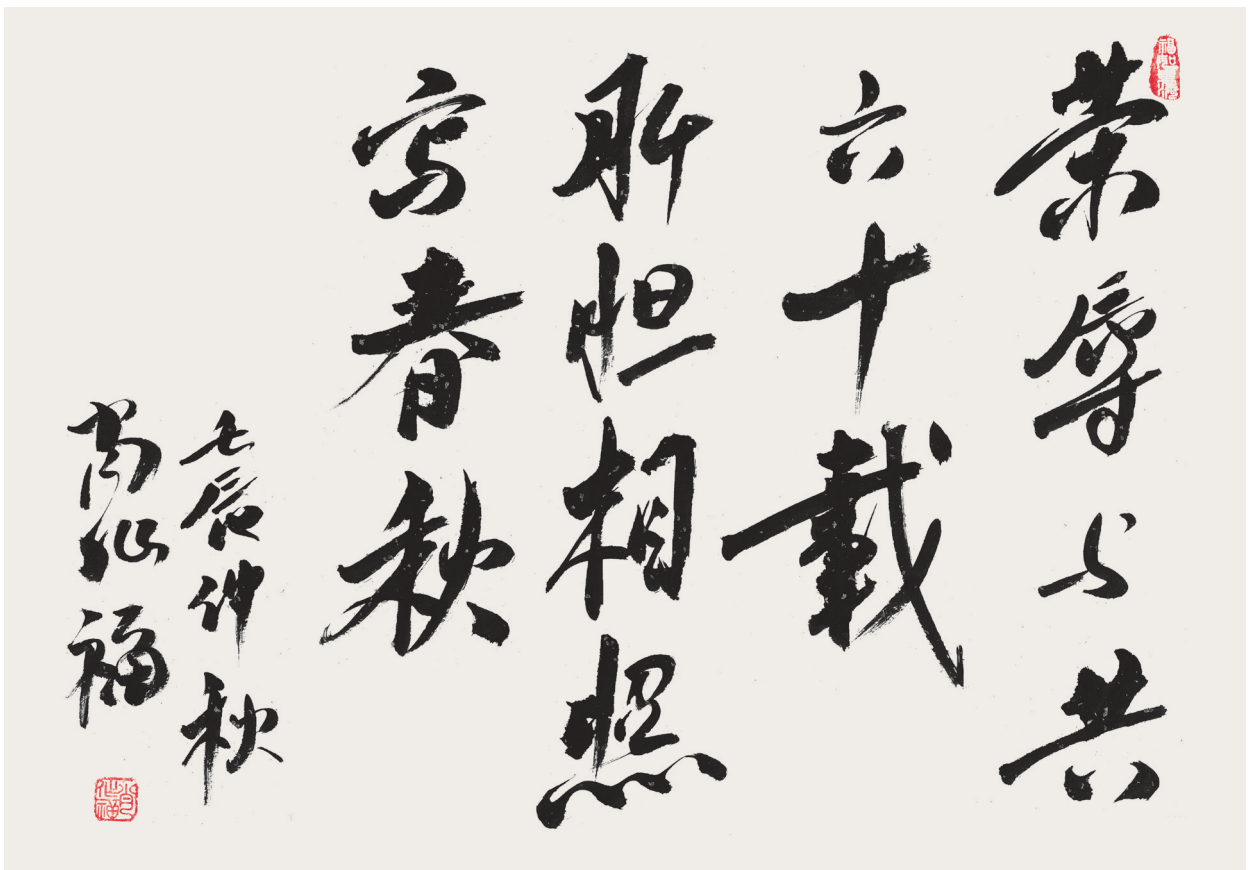 荣辱与共
六十载
肝胆相照
写春秋
壬辰仲秋
肖作福